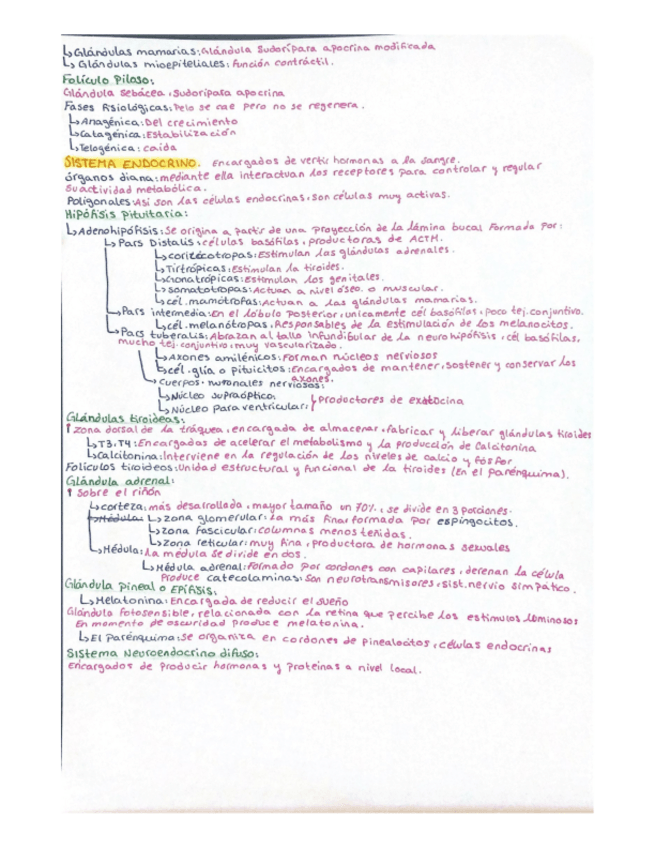 ↳Glándulas mamarias: Glándula Sudorípara apocrina modificada
↳Glándulas mioepiteliales: Función contráctil.
Folículo Piloso:
Glándula Sebácea, Sudorípara apocrina
Fases Fisiológicas: Pelo se cae pero no se regenera.
↳Anagénica: Del crecimiento
↳Catagénica: Estabilización
↳Telogénica: caída
SISTEMA ENDOCRINO. Encargados de vertir hormonas a la sangre.
órganos diana: mediante ella interactuan los receptores para controlar y regular
su actividad metabólica.
Poligonales: Así son las células endocrinas, son células muy activas.
Hipófisis pituitaria:
↳Adenohipófisis: Se origina a partir de una proyección de la lámina bucal Formada Por:
↳Pars Distalis: células basófilas, productoras de ACTH.
↳corticotropas: Estimulan las glándulas adrenales.
↳Tirtrópicas: Estimulan la tiroides.
↳Gonatrópicas: Estimulan los genitales.
↳somatotropas: Actuan a nivel óseo o muscular.
↳cél. mamótrofas: Actuan a las glándulas mamarias.
↳Pars intermedia: En el lóbulo posterior, unicamente cél basófilas, poco tej. conjuntivo.
↳cél. melanótropas: Responsables de la estimulación de los melanocitos.
↳Pars tuberalis: Abrazan al tallo infundibular de la neurohipófisis, cél basófilas,
mucho tej. conjuntivo, muy vascularizado.
↳Axones amilénicos: Forman núcleos nerviosos
↳cél. glía o pituicitos: Encargados de mantener, sostener y conservar los
axones.
↳cuerpos nuronales nerviosos:
↳Núcleo supraóptico:
↳Núcleo Paraventricular: productores de exotocina
Glándulas tiroideas:
↑ zona dorsal de la tráquea, encargada de almacenar, fabricar y liberar glándulas tiroides
↳T3, T4: Encargadas de acelerar el metabolismo y la producción de Calcitonina
↳Calcitonina: Interviene en la regulación de los niveles de calcio y fósfor
Folículos tiroideos: Unidad estructural y funcional de la tiroides (En el parénquima).
Glándula adrenal:
↑ Sobre el riñón
↳corteza: más desarrollada, mayor tamaño un 70%, se divide en 3 porciones.
Médula: ↳zona glomerular: La más fina, formada por espingocitos.
↳zona Fascicular: columnas menos teñidas.
↳zona reticular: muy fina, productora de hormonas sexuales
↳Médula: La médula se divide en dos.
↳Médula adrenal: formado por cordones con capilares, derenan la célula
Produce catecolaminas: Son neurotransmisores, sist. nervio simpático.
Glándula Pineal o Epífisis:
↳Melatonina: Encargada de reducir el sueño
Glándula fotosensible, relacionada con la retina que percibe los estimulos luminosos
En momento de oscuridad produce melatonina.
↳El Parénquima: Se organiza en cordones de pinealocitos, células endocrinas
Sistema Neuroendocrino difuso:
Encargados de producir hormonas y proteinas a nivel local.